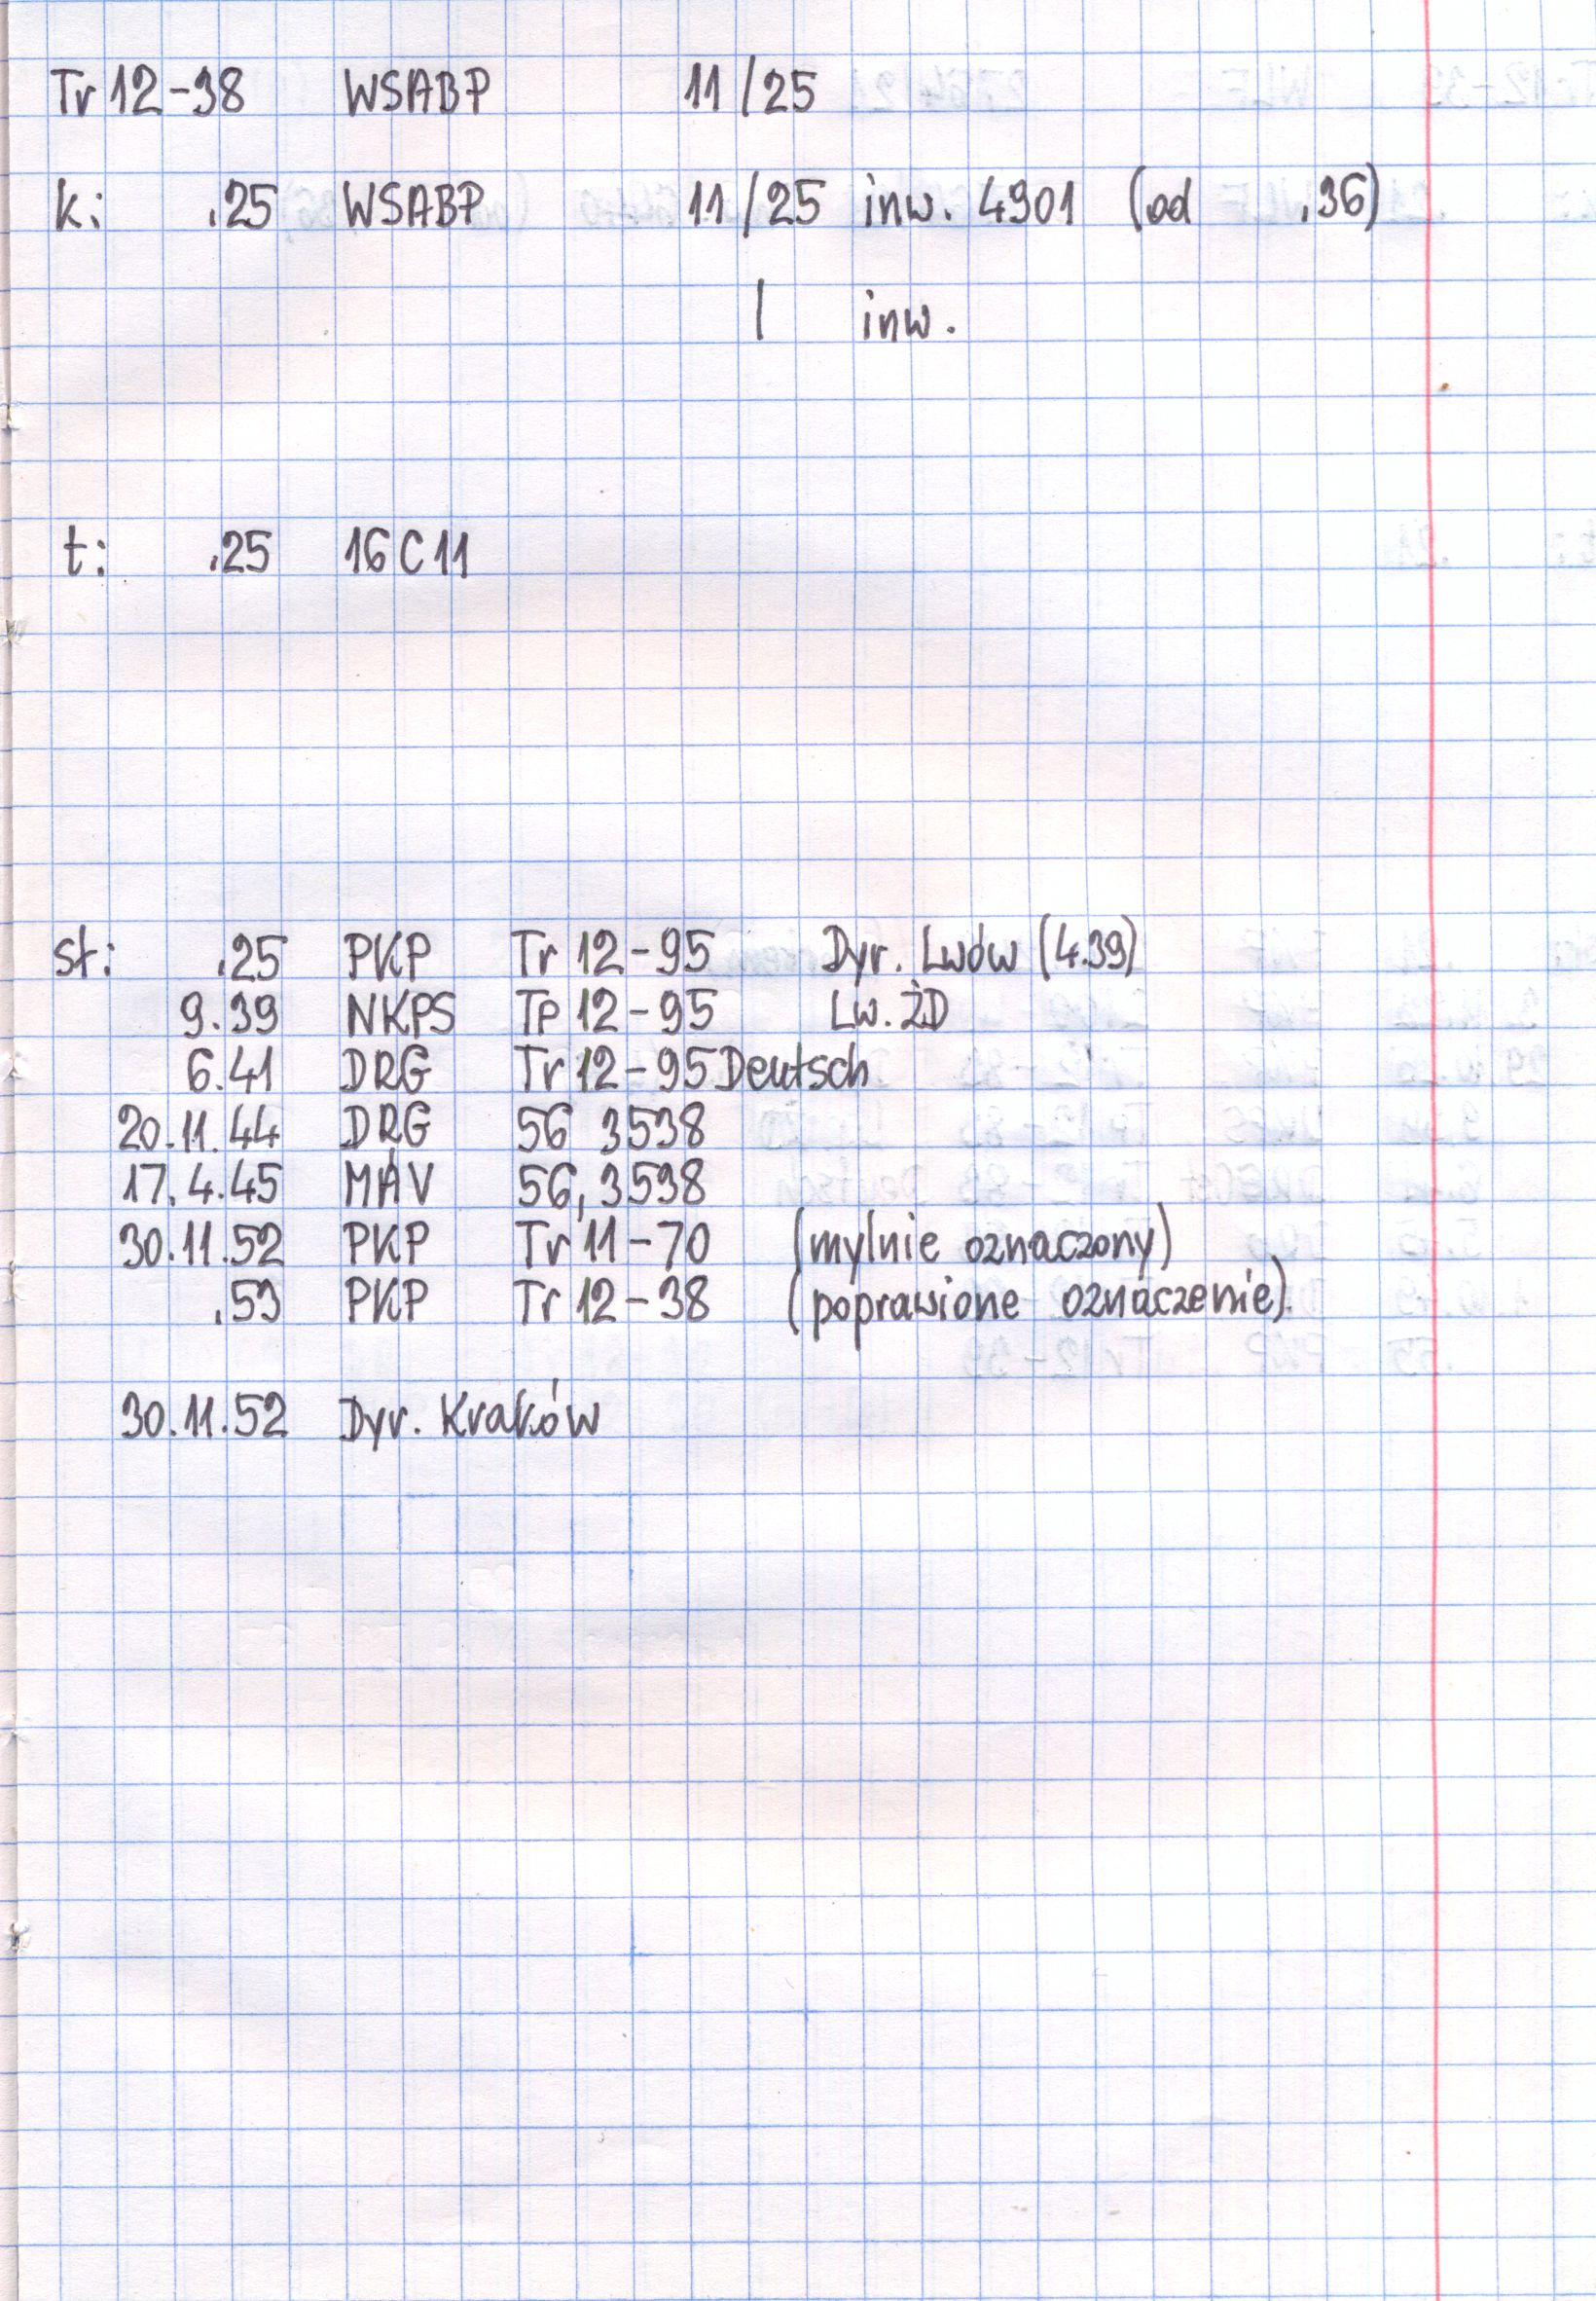 Tr 12-38 WSABP 11/25
k: .25 WSABP 11/25 inw. 4901 (od .36)
/ inw.
t: .25 16C11
st: .25 PKP Tr 12-95 Dyr. Lwów (4.39)
9.39 NKPS Tp 12-95 Lw. ŻD
6.41 DRG Tr 12-95 Deutsch
20.11.44 DRG 56 3538
17.4.45 MÁV 56,3538
30.11.52 PKP Tr 11-70 (mylnie oznaczony)
.53 PKP Tr 12-38 (poprawione oznaczenie).
30.11.52 Dyr. Kraków